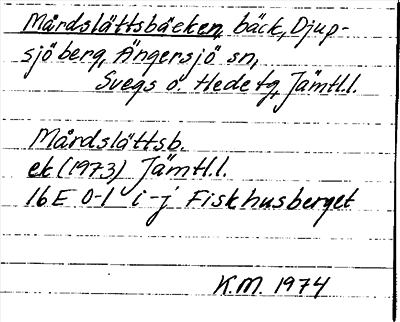 Mårdslättsbäcken, bäck, Djup-
sjöberg, Ängersjö sn,
Svegs o. Hede tg, Jämtl.l.
Mårdslättsb.
ek (1973) Jämtl.l.
16E 0-1 i-j Fiskhusberget
K.M. 1974